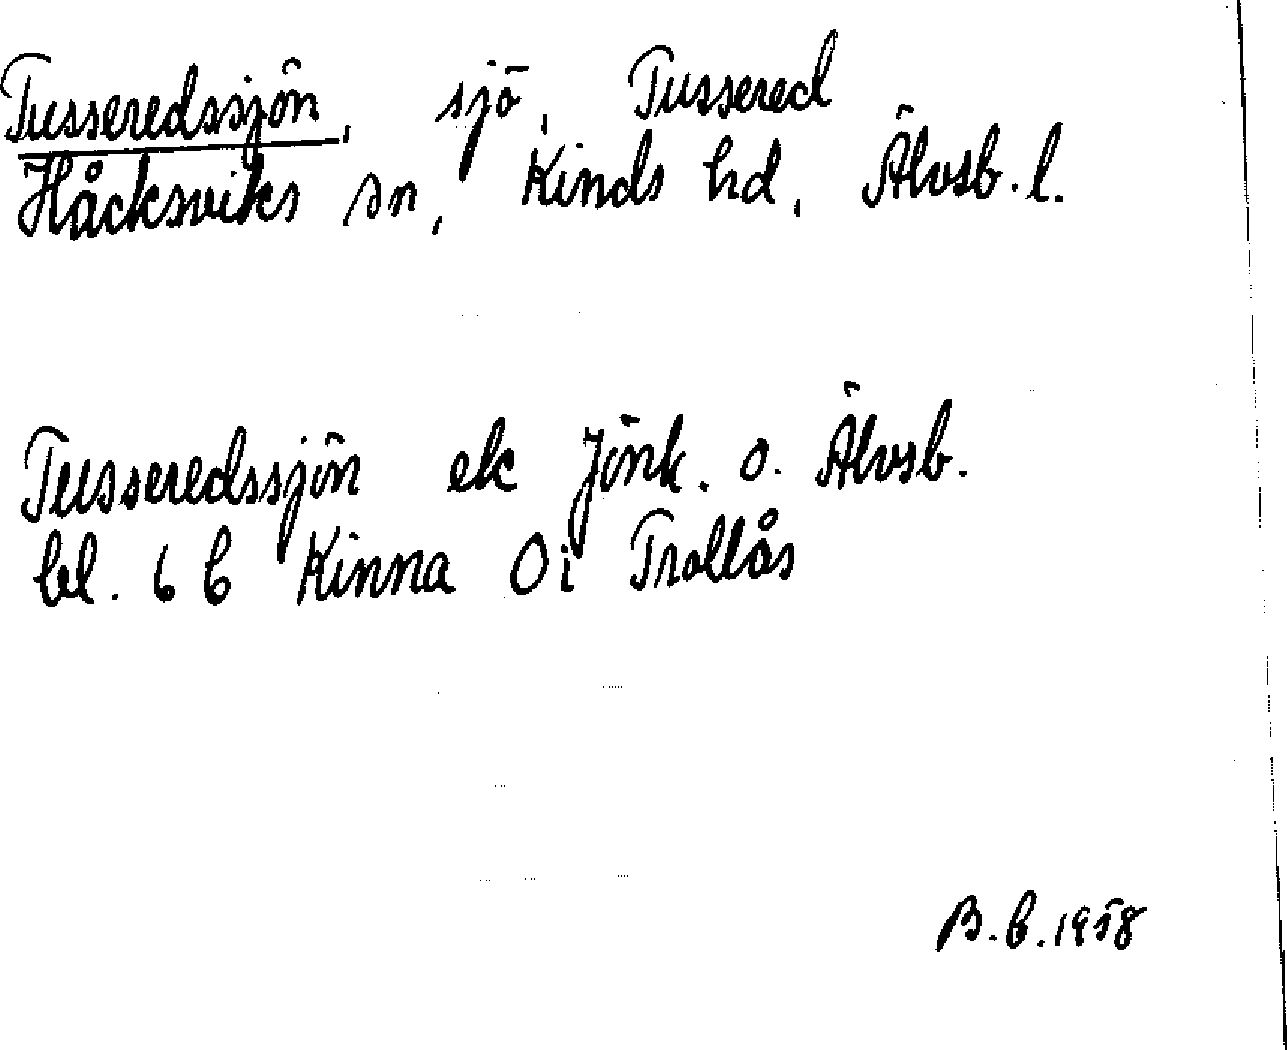 Tusseredssjön, sjö, Tussered
Håcksviks sn, Kinds hd, Älvsb. l.
Tusseredssjön ek Jönk. o. Älvsb.
bl. 6 b Kinna Oi Trollås
B. b. 1958